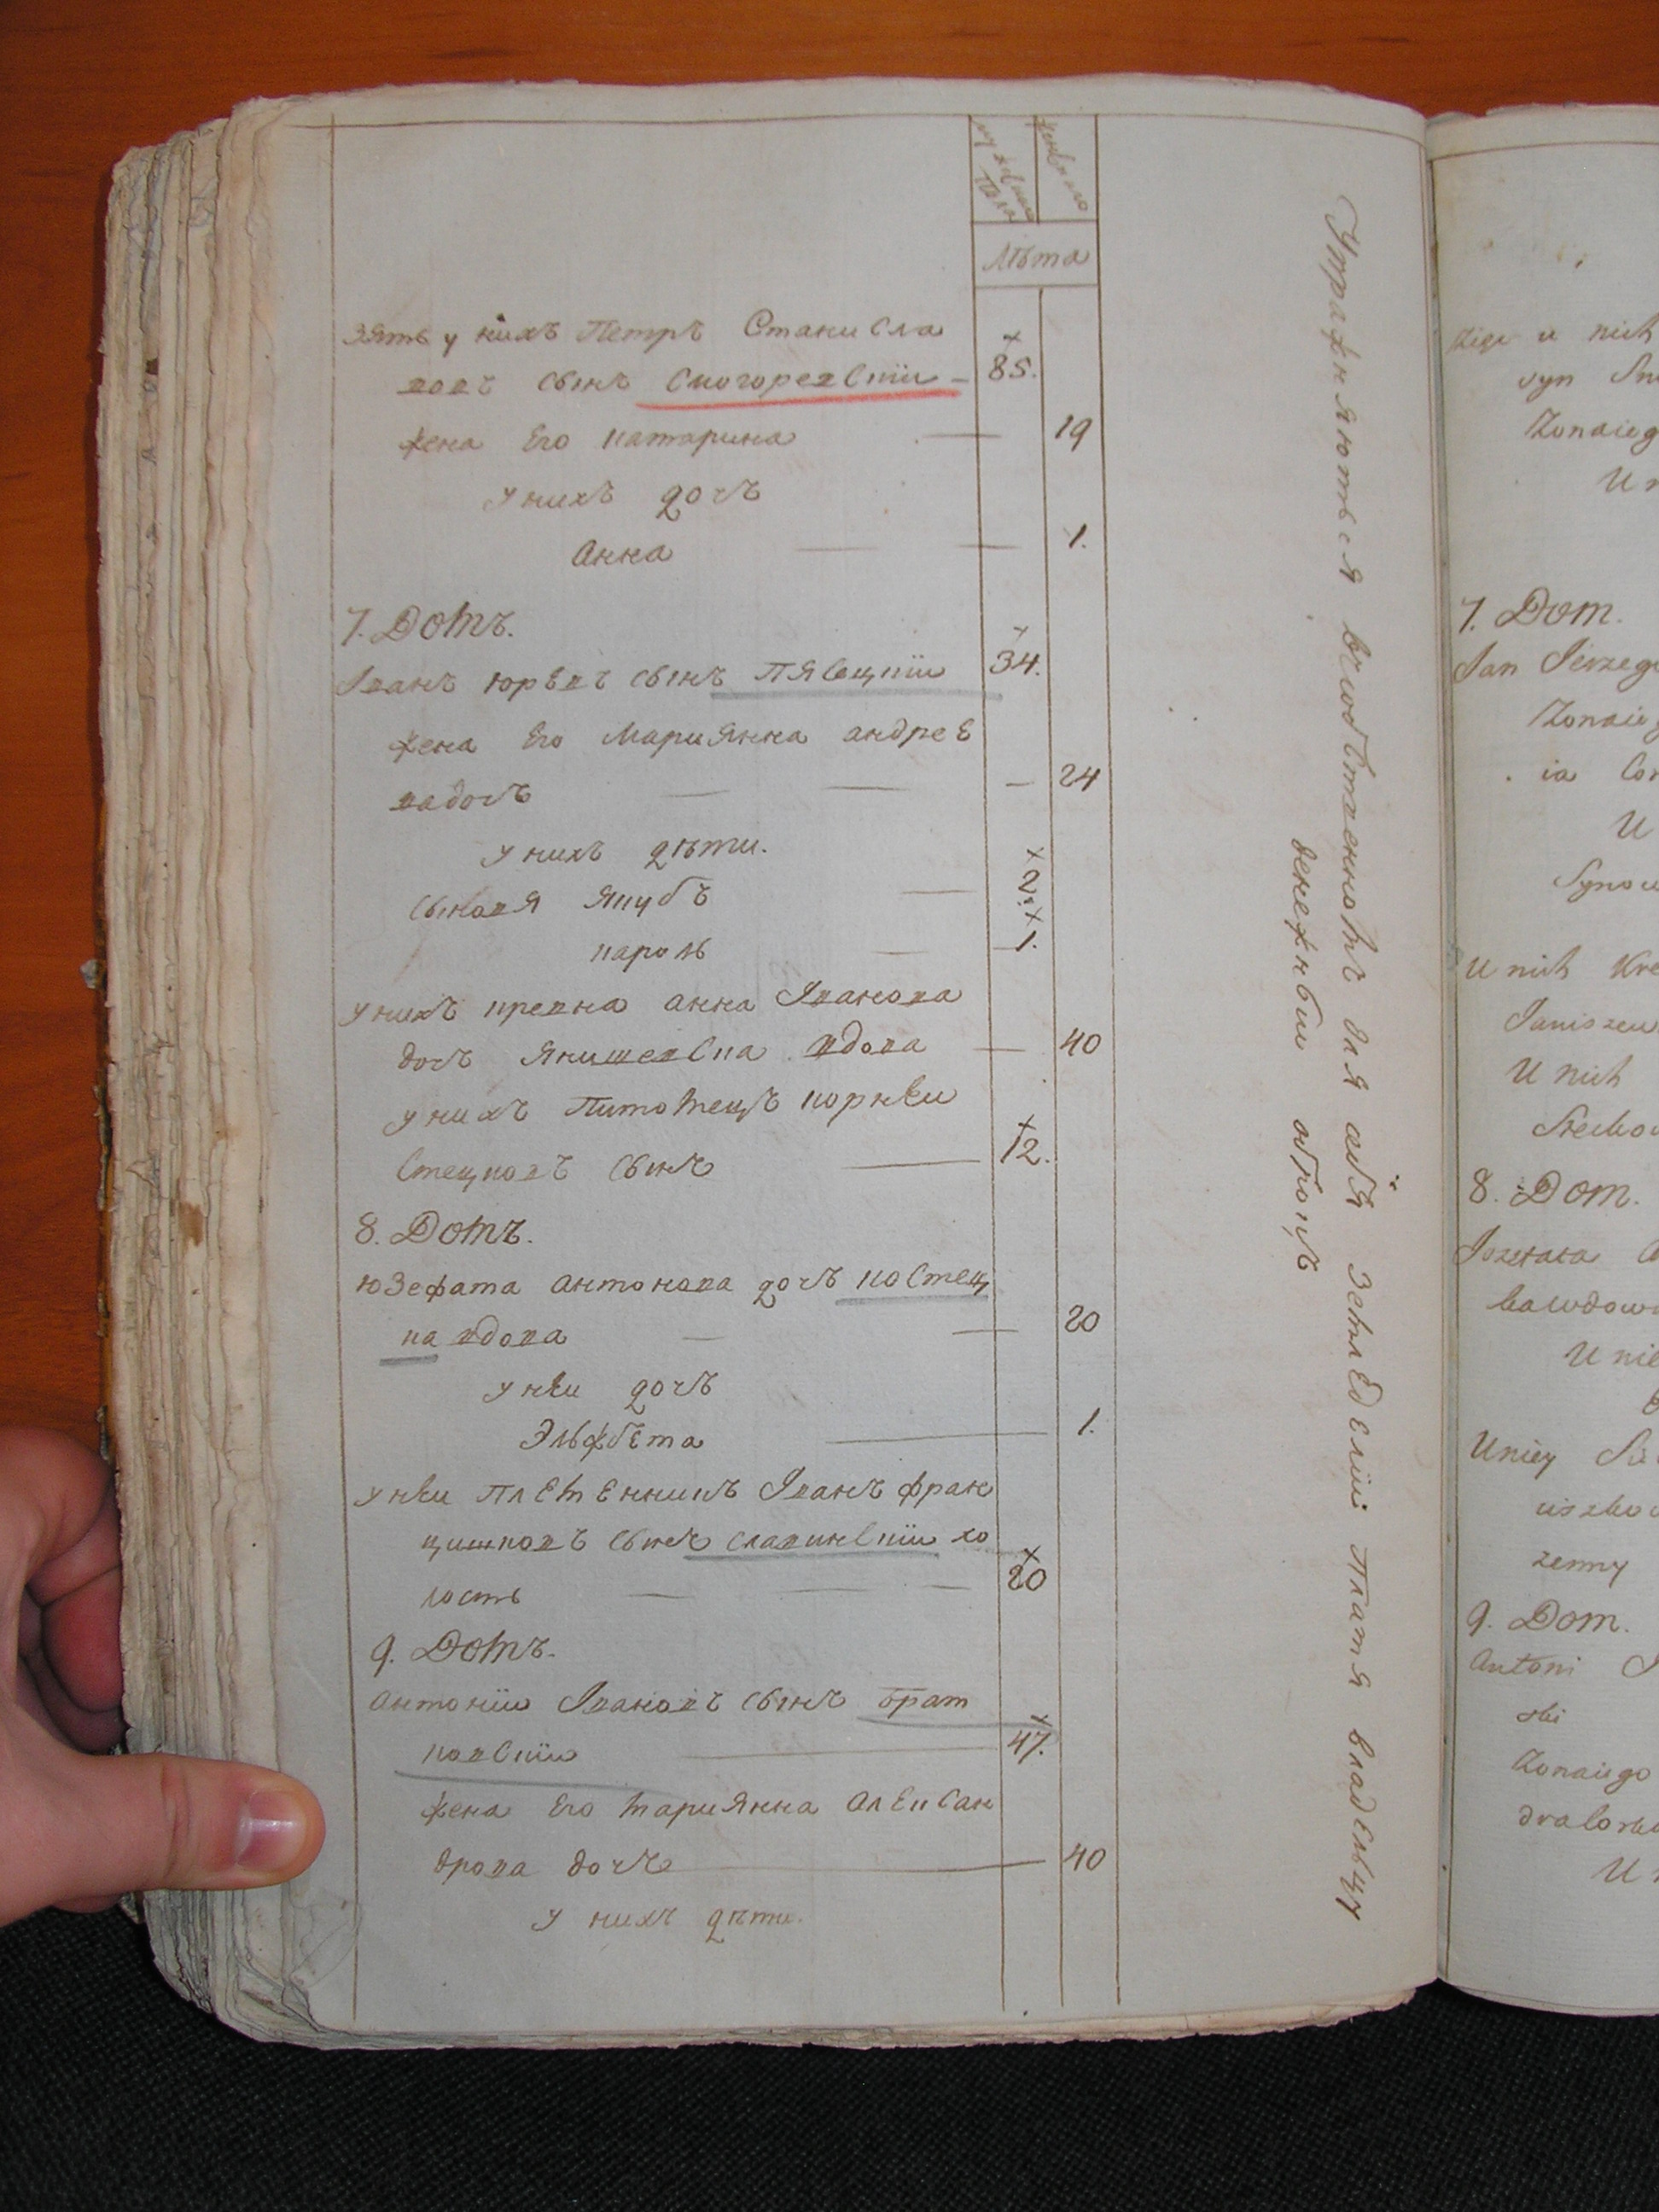 мужеска
пола
женска
лѣта
зять у нихъ Петръ Станисла
вовъ сынъ Скогоревскїи 85.
жена Его катарина 19
у нихъ дочъ
Анна 1.
7. Домъ.
Іванъ юрьевъ сынъ Пясецкїи 34.
жена Его Мариянна андреЕ
ва дочъ 24
у нихъ дѣти.
сыновя якубъ 2.
кароль 1.
у нихъ кревна анна Іванова
дочъ янишевска вдова 40
у нихъ Питомецъ корнѣи
Стецковъ сынъ 12.
8. Домъ.
юзефата антонова дочъ костец
ка вдова 20
у нѣи дочъ
ЭльжбЕта 1.
у нѣи племЕнникъ Іванъ фран
цишковъ сынъ славинскїи хо
лостъ 20
9. Домъ.
антонїи Івановъ сынъ брат
ковскїи 47.
жена Его мариянна алЕксан
дрова дочъ 40
у нихъ дѣти.
Упражняютъся въ собственномъ для себя землЕдЕлїи платя владЕльцу
денежныи оброкъ
U nich
syn
Zonaieg
U
7. Dom.
Jan Jerzego
Zonaieg
U
Synow
U nich Kre
Janiszew
U nich
Steckow
8. Dom.
Jozefata
ka wdowa
U nie
U niey
ciszkow
zenny
9. Dom.
Antoni J
ski
Zonaiego
drolowa
U